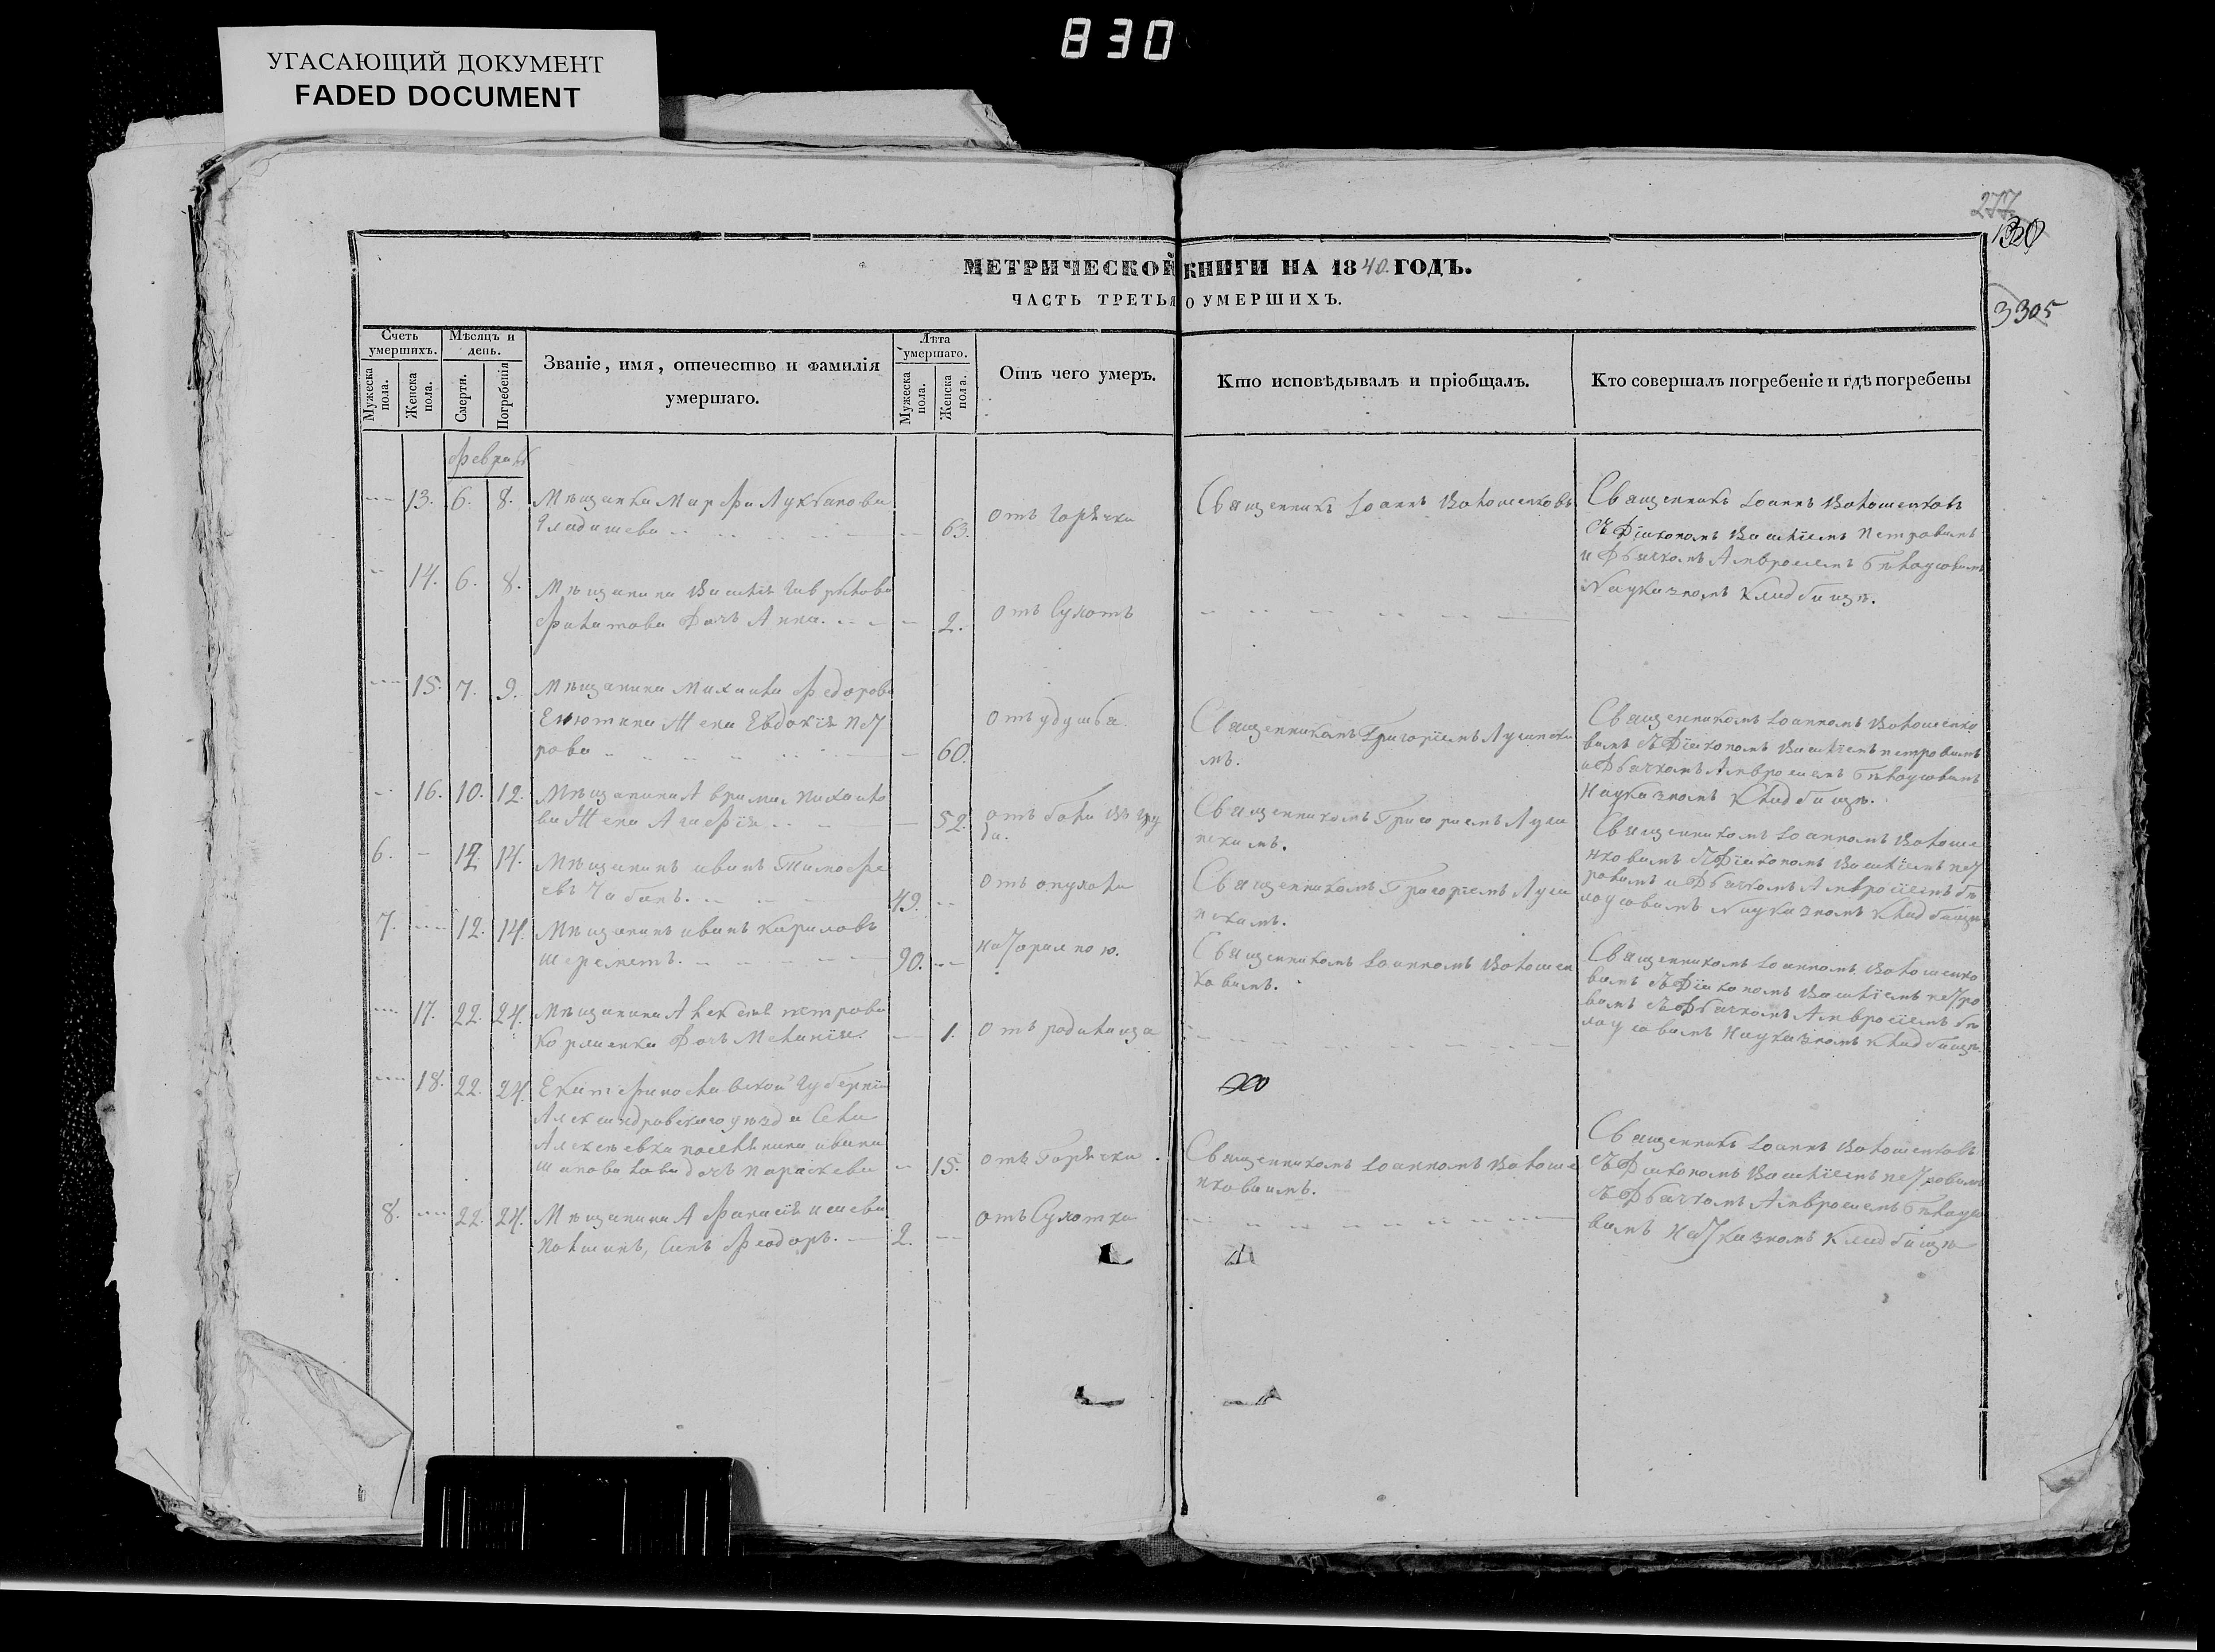 830
УГАСАЮЩИЙ ДОКУМЕНТ
FADED DOCUMENT
277
130
3305
МЕТРИЧЕСКОЙ КНИГИ НА 1840. ГОДЪ.
ЧАСТЬ ТРЕТЬЯ О УМЕРШИХЪ.
Счетъ умершихъ.
Мужеска пола.
Женска пола.
Мѣсяцъ и день.
Смерти.
Погребенія
Званіе, имя, отечество и фамилія умершаго.
Лѣта умершаго.
Мужеска пола.
Женска пола.
Отъ чего умеръ.
Кто исповѣдывалъ и пріобщалъ.
Кто совершалъ погребеніе и гдѣ погребены
13. 6. 8. Мѣщанка Марфа
63. отъ горячки
Священникъ Іоаннъ Волошенковъ
Священникъ Іоаннъ Волошенковъ
съ Діакономъ Василіемъ Петровымъ
и Дьячкомъ Амвросіемъ Бѣлоусовымъ
кладбищѣ.
14. 6. 8. Мѣщанина Василія Гаврилова
Филатова дочь Анна.
2. отъ Сухотъ
15. 7. 9. Мѣщанина Михаила Федорова
Енютина жена Евдокія Пет
рова
60. отъ удушья.
Священникомъ Григоріемъ
мъ.
Священникомъ Іоанномъ Волошенко
вымъ съ Діакономъ Василіемъ Петровымъ
и Дьячкомъ Амвросіемъ Бѣлоусовымъ
кладбищѣ.
16. 10. 12. Мѣщанина Михайло
ва жена Агафія
52. отъ боли въ гру
ди.
Священникомъ Григоріемъ
6. 12. 14. Мѣщанинъ Иванъ Тимофе
евъ Чабанъ.
49. отъ опухоли
Священникомъ Григоріемъ
Священникомъ Іоанномъ Волоше
нковымъ съ Діакономъ Василіемъ Пет
ровымъ и Дьячкомъ Амвросіемъ Бѣ
лоусовымъ кладбищѣ
7. 12. 14. Мѣщанинъ Иванъ Кириловъ
Шереметъ.
90.
Священникомъ Іоанномъ Волошен
ковымъ.
Священникомъ Іоанномъ Волошенко
вымъ съ Діакономъ Василіемъ Петро
вымъ съ Дьячкомъ Амвросіемъ Бѣ
лоусовымъ кладбищѣ.
17. 22. 24. Мѣщанина Алексѣя Петрова
Корниенка дочь Меланія.
1. отъ родимца
18. 22. 24. Екатеринославской Губерніи
Александровскаго уѣзда Села
Алексѣевки поселянина Ивана
Шаповалова дочь Параскева
15. отъ Горячки.
Священникомъ Іоанномъ Волоше
нковымъ.
Священникъ Іоаннъ Волошенковъ
съ Діакономъ Василіемъ Петровымъ
съ Дьячкомъ Амвросіемъ Бѣлоусо
вымъ кладбищѣ
8. 22. 24. Мѣщанина Афанасія Исаева
сынъ Феодоръ.
2. отъ Сухотки